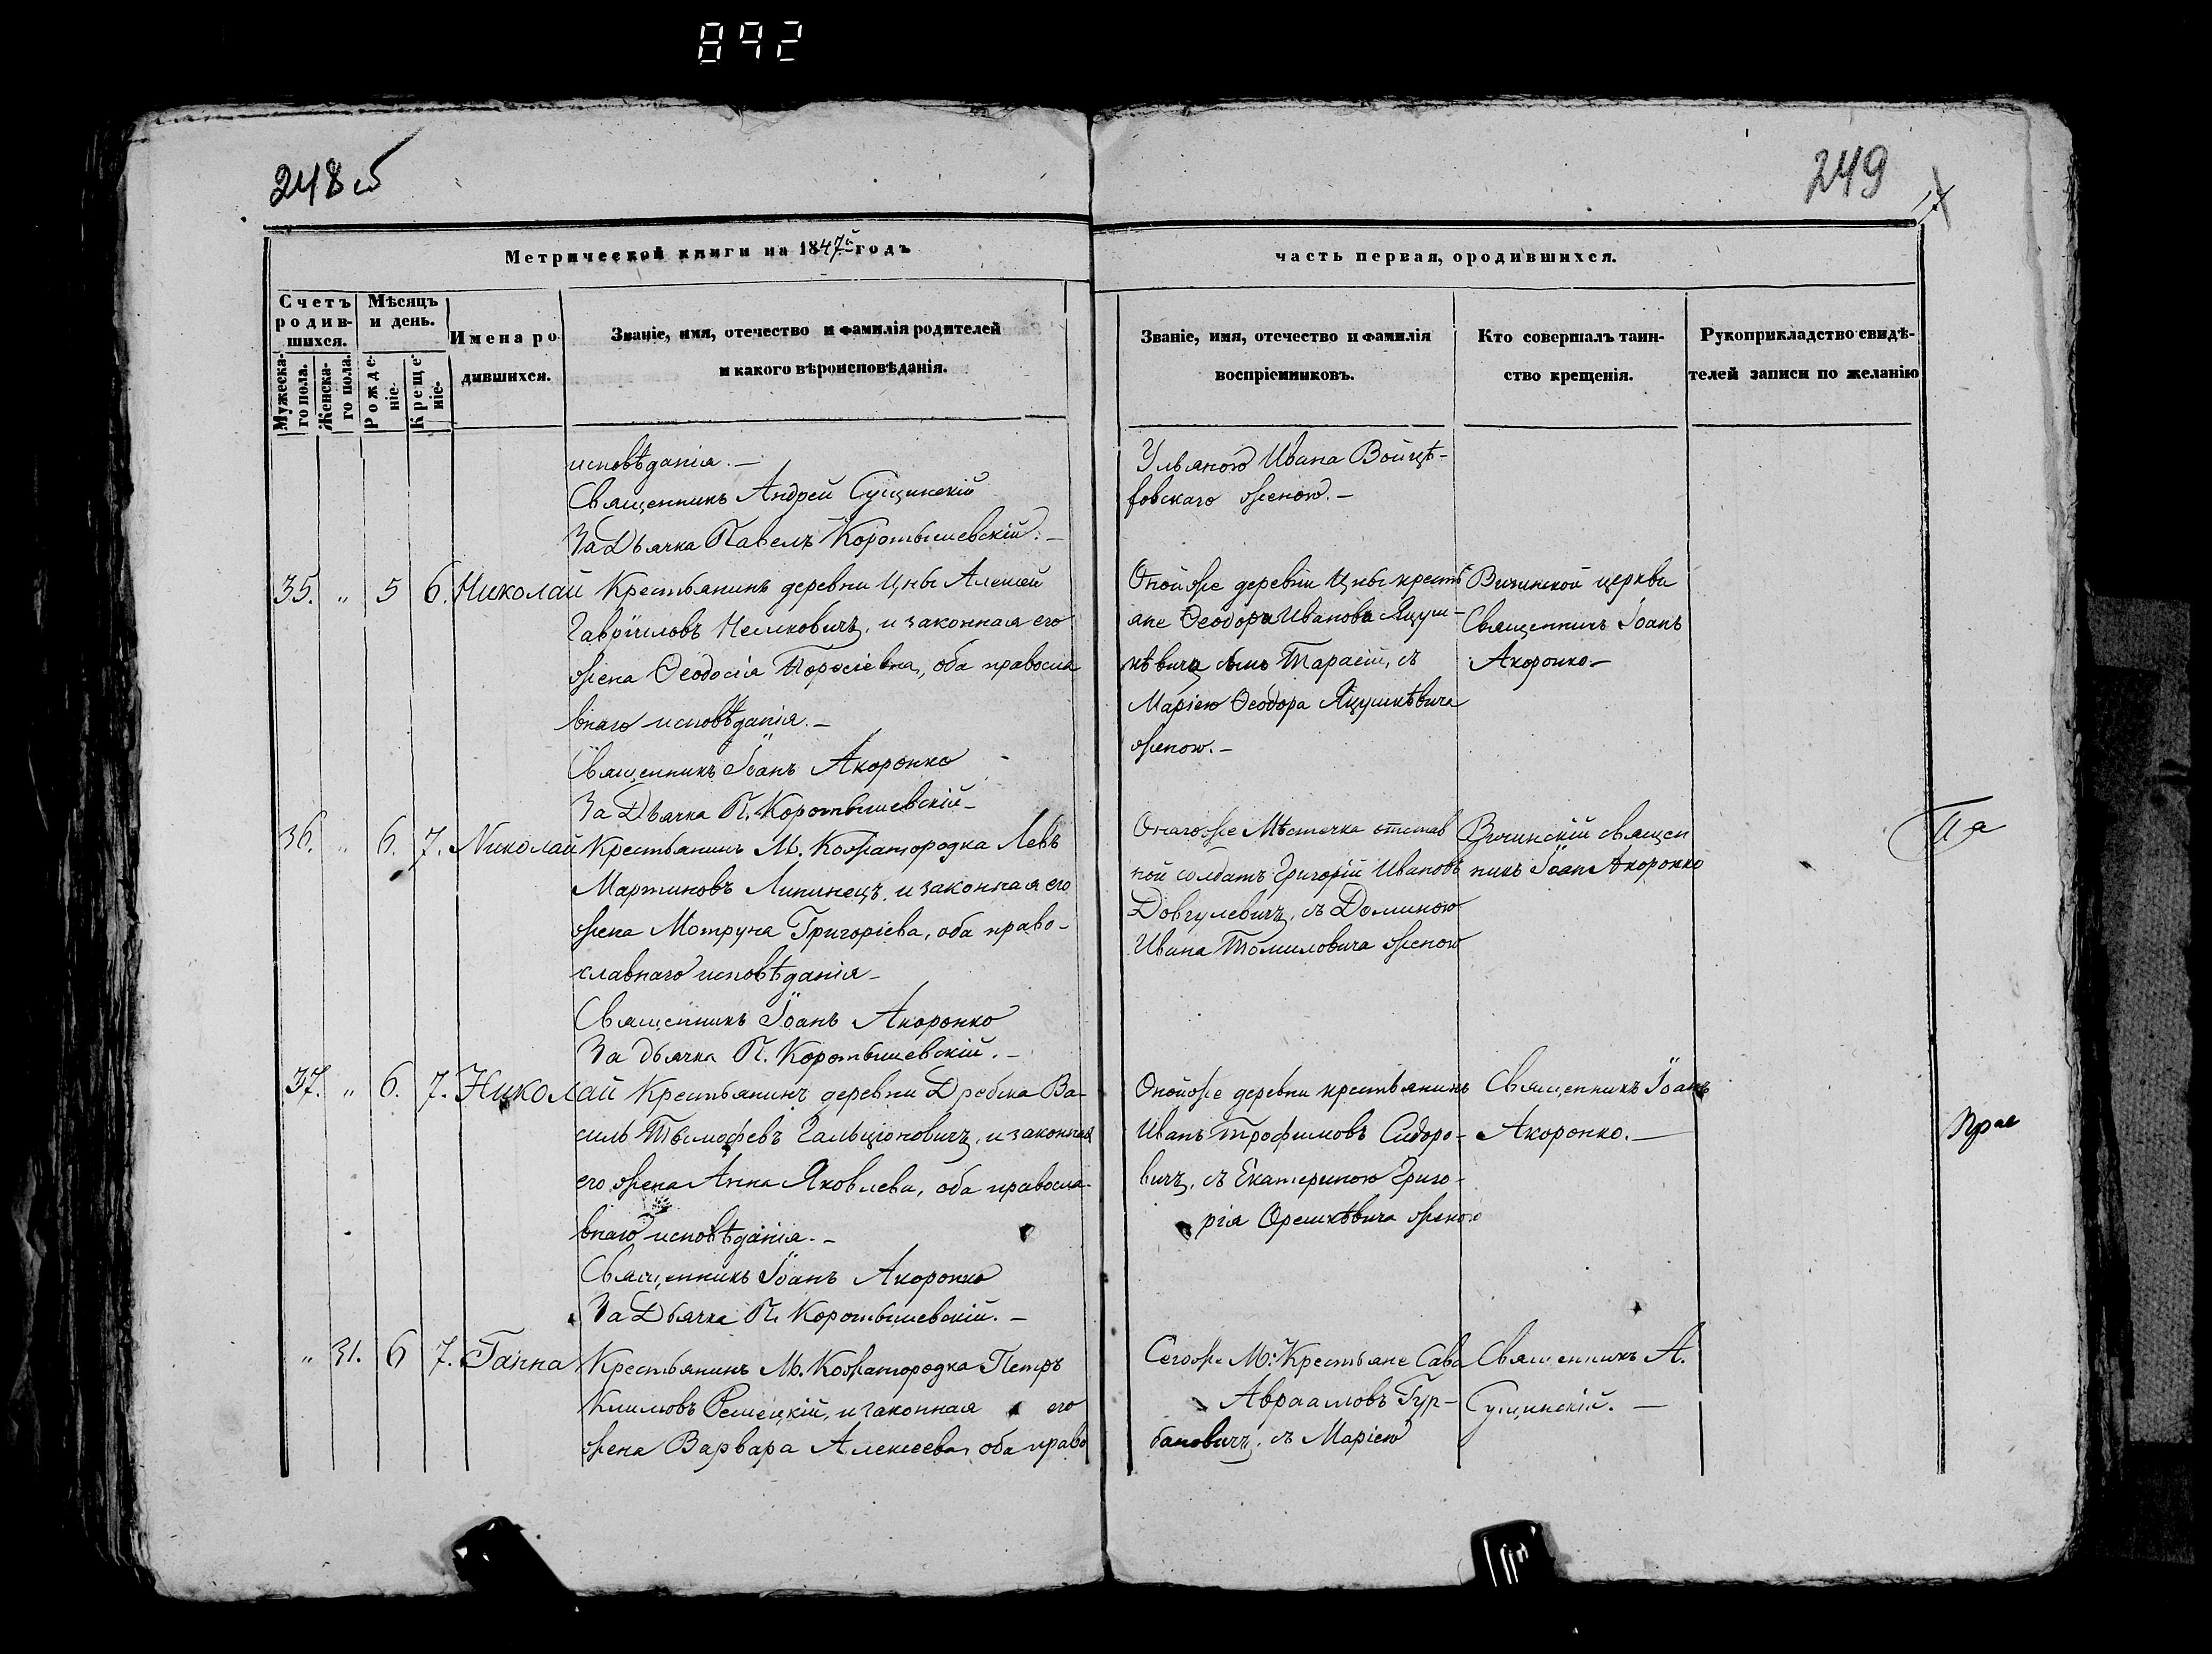 892
248 об
249
Метрической книги на 1847й годъ
часть первая, ородившихся.
Счетъ родив-
шихся.
Мѣсяцъ
и день.
Мужеска-
го пола.
Женска-
го пола.
Рожде-
ніе.
Креще-
ніе.
Имена ро
дившихся.
Званіе, имя, отечество и фамилія родителей
и какого вѣроисповѣданія.
Званіе, имя, отечество и фамилія
воспріемниковъ.
Кто совершалъ таин-
ство крещенія.
Рукоприкладство свидѣ-
телей записи по желанію
исповѣданія.—
Священникъ Андрей Сущинскій
За Дьячка Павелъ Коротышевскій.—
Ульяною Ивана Войцѣ-
ховскаго женою.—
35. " 5 6. Николай Крестьянинъ деревни Цны Алексѣй
Гавріиловъ Немковичъ, и законная его
жена Ѳеодосія, оба правосла
внаго исповѣданія.—
Священникъ Іоанъ Акоронко
За Дьячка П. Коротышевскій—
Оной же деревни Цны крестъ
яне Ѳеодора Иванова Яцуш-
кѣвича сынъ Тарасій, съ
Маріею Ѳеодора Яцушкѣвича
женою.—
Вичинской церкви
Священникъ Іоанъ
Акоронко—
36. " 6. 7. Николай Крестьянинъ М. Кожангородка Левъ
Мартиновъ Липинецъ, и законная его
жена Мотруна Григоріева, оба право-
славнаго исповѣданія—
Священникъ Іоанъ Акоронко
За дьячка П. Коротышевскій.—
Онагоже Мѣстечка отстав
ной солдатъ Григорій Ивановъ
Довгулевичъ, съ Доминою
Ивана Томиловича женою
Вичинскій священ
никъ Іоан Акоронко
37. " 6. 7. Николай Крестьянинъ деревни Дребска Ва-
силь Тымофевъ Гальціоновичъ, и законная
его жена Анна Яковлева, оба правосла-
внаго исповѣданія.—
Священникъ Іоанъ Акоронко
За Дьячка П. Коротышевскій.—
Онойже деревни крестьянинъ
Иванъ Трофимовъ Сидоро-
вичъ, съ Екатериною Григо-
рія Орешкѣвича женою
Священникъ Іоанъ
Акоронко.—
" 31. 6 7. Ганна Крестьянинъ М. Кожангородка Петръ
Климовъ Ремецкій, и законная его
жена Варвара Алексеева, оба право
Сегоже М: Крестьяне Сава
Авраамовъ Гур-
бановичъ, съ Маріею
Священникъ А.
Сущинскій.—